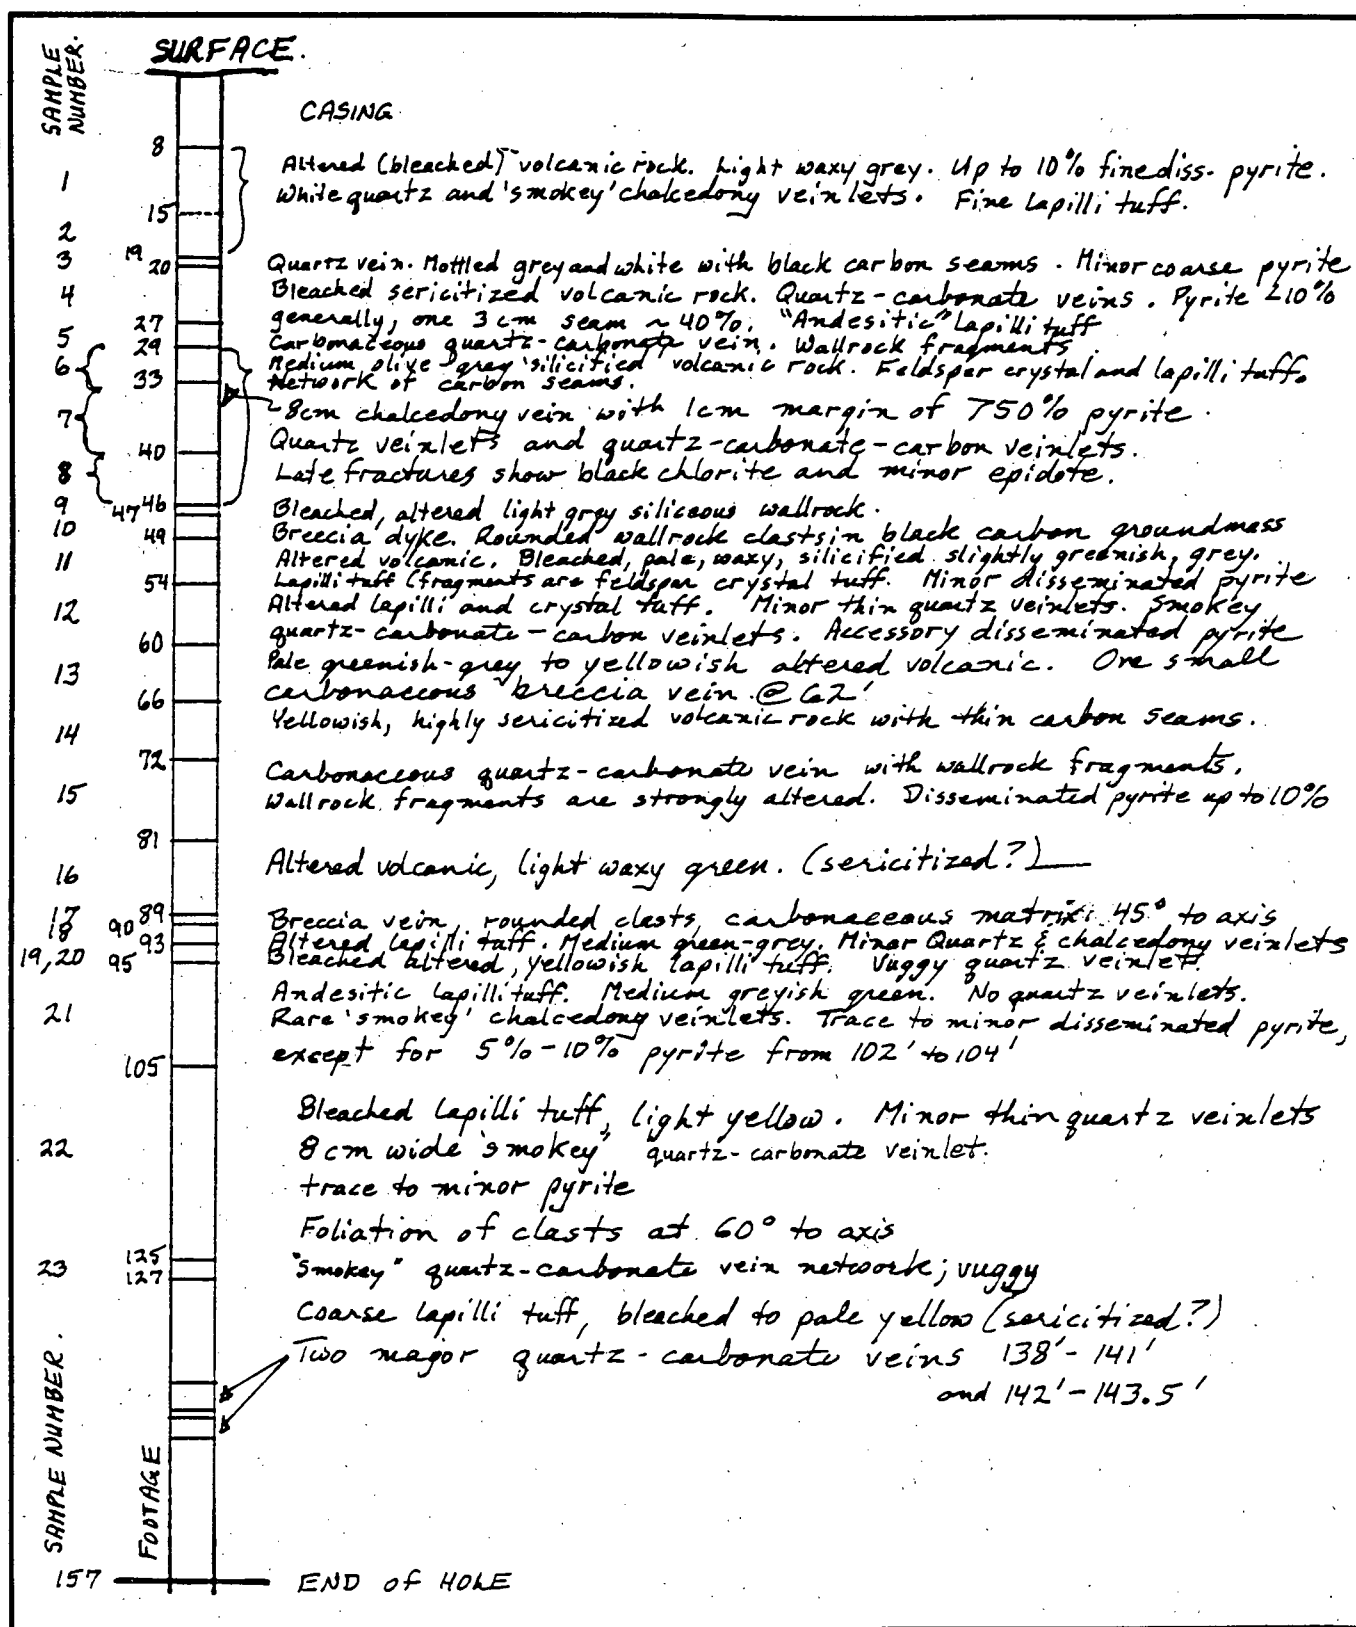 SAMPLE NUMBER.
SURFACE.
CASING
8
Altered (bleached) volcanic rock. Light waxy grey. Up to 10% fine diss. pyrite.
1
White quartz and 'smokey' chalcedony veinlets. Fine lapilli tuff.
15
2
19
3 20 Quartz vein. Mottled grey and white with black carbon seams. Minor coarse pyrite
4 Bleached sericitized volcanic rock. Quartz-carbonate veins. Pyrite <10%
27 generally, one 3 cm seam ~ 40%. "Andesitic" Lapilli tuff
5 29 Carbonaceous quartz-carbonate vein. Wallrock fragments
6 Medium olive-gray silicified volcanic rock. Feldspar crystal and lapilli tuff.
33 Network of carbon seams.
7 ~8cm chalcedony vein with 1cm margin of 750% pyrite.
40 Quartz veinlets and quartz-carbonate-carbon veinlets.
8 Late fractures show black chlorite and minor epidote.
9 47 46 Bleached, altered light grey siliceous wallrock.
10 49 Breccia dyke. Rounded wallrock clasts in black carbon groundmass
11 Altered volcanic. Bleached, pale, waxy, silicified slightly greenish, grey.
54 Lapilli tuff (fragments are feldspar crystal tuff. Minor disseminated pyrite
12 Altered lapilli and crystal tuff. Minor thin quartz veinlets. Smokey
60 quartz-carbonate-carbon veinlets. Accessory disseminated pyrite
13 Pale greenish-grey to yellowish altered volcanic. One small
66 carbonaceous breccia vein @ 62'
14 Yellowish, highly sericitized volcanic rock with thin carbon seams.
72
Carbonaceous quartz-carbonate vein with wallrock fragments.
15 Wallrock fragments are strongly altered. Disseminated pyrite up to 10%
81
16 Altered volcanic, light waxy green. (sericitized?)
17 89 Breccia vein, rounded clasts, carbonaceous matrix: 45° to axis
18 90 93 Altered lapilli tuff. Medium green-grey. Minor Quartz & chalcedony veinlets
19,20 95 Bleached altered, yellowish lapilli tuff. Vuggy quartz veinlet.
Andesitic lapilli tuff. Medium greyish green. No quartz veinlets.
21 Rare 'smokey' chalcedony veinlets. Trace to minor disseminated pyrite,
except for 5%-10% pyrite from 102' to 104'
105
Bleached lapilli tuff, light yellow. Minor thin quartz veinlets
22 8 cm wide 'smokey" quartz-carbonate veinlet.
trace to minor pyrite
Foliation of clasts at 60° to axis
125
23 127 "Smokey" quartz-carbonate vein network; vuggy
Coarse lapilli tuff, bleached to pale yellow (sericitized?)
Two magor quartz-carbonate veins 138'-141'
and 142'-143.5'
SAMPLE NUMBER.
FOOTAGE
157 END of HOLE